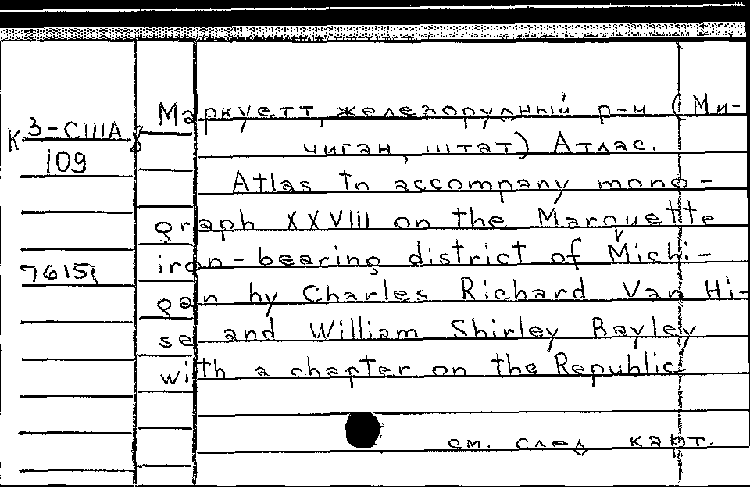 Маркуетт, железорудный р-н (Ми-
К 3-США
чиган, штат) Атлас.
109
Atlas to accompany mono-
graph XXVIII on the Marquette
iron-bearing district of Michi-
76151
gan by Charles Richard Van Hi-
se and William Shirley Bayley
with a chapter on the Republic
см. след карт.